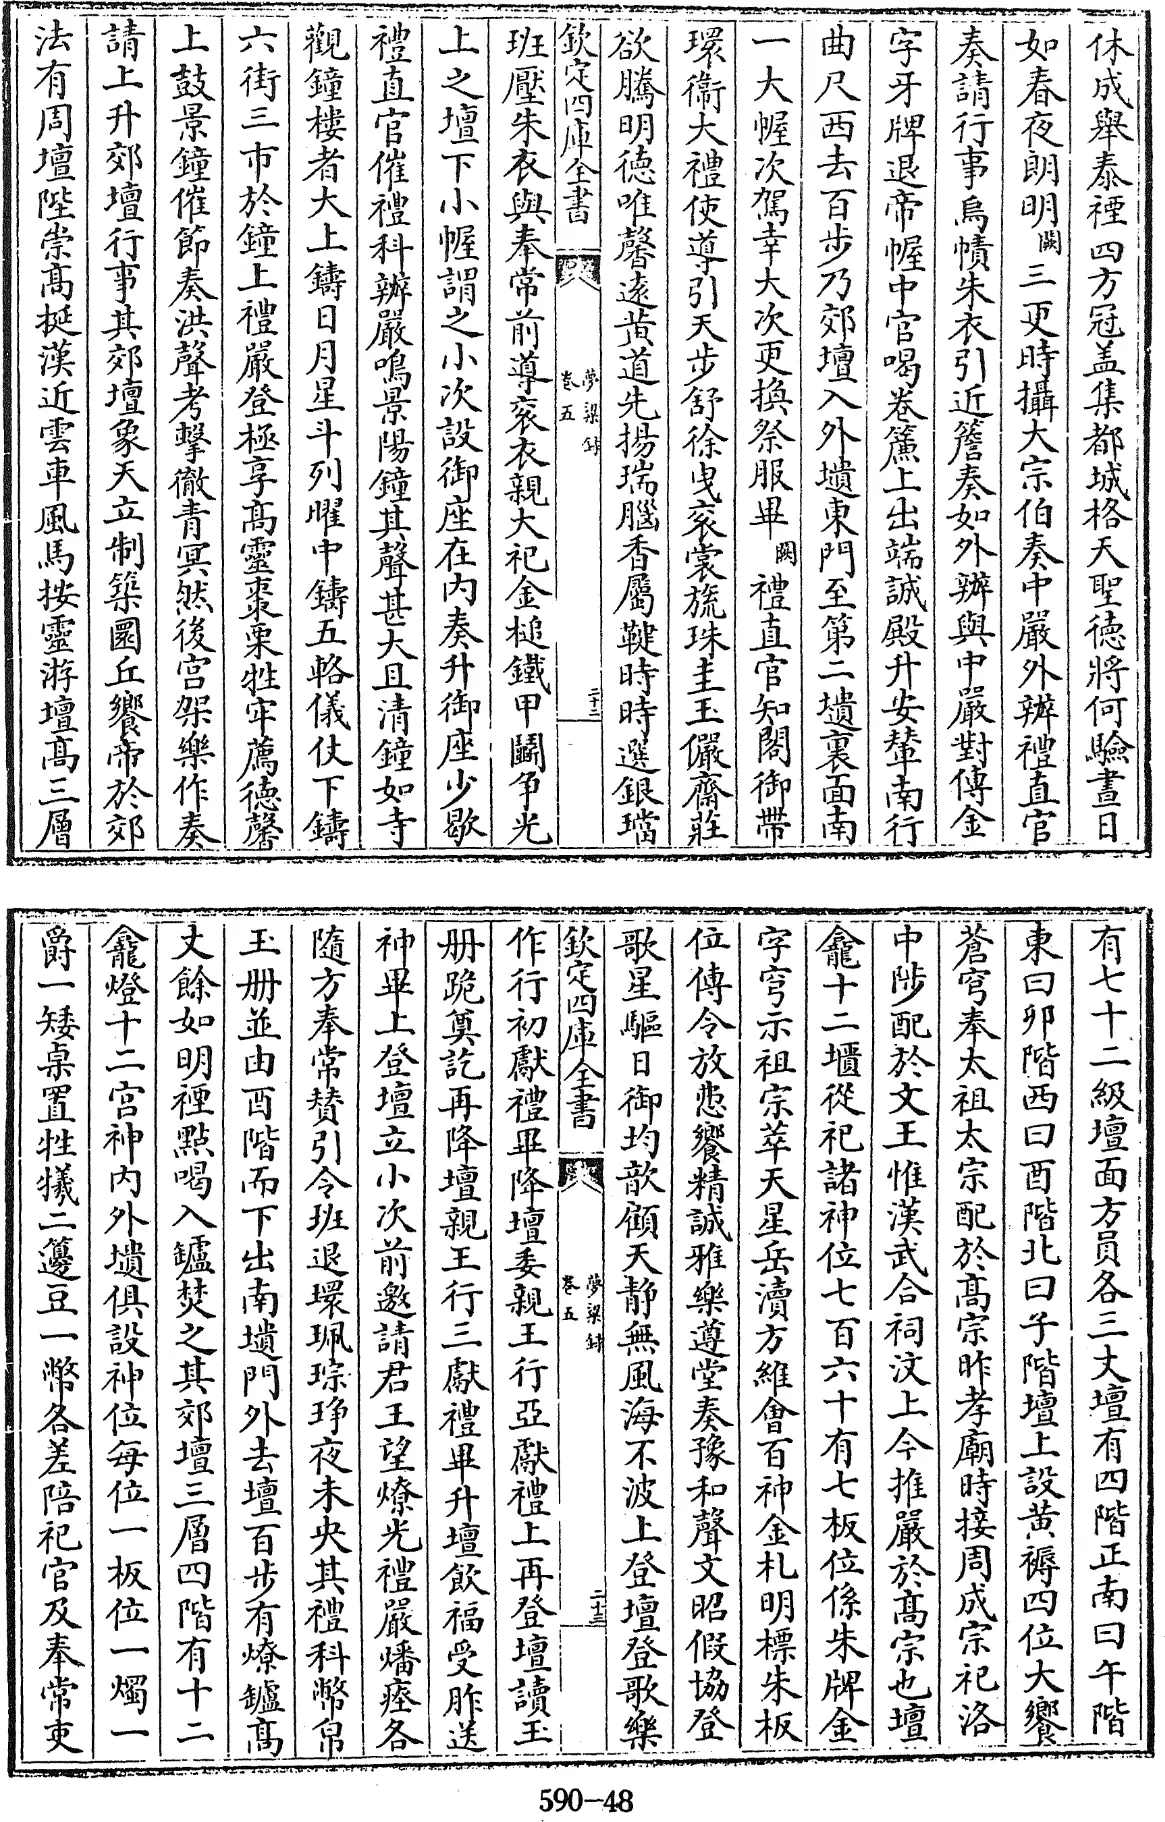 休成舉泰禋四方冠盖集都城格天聖徳將何驗晝日
如春夜朗明闕三更時攝大宗伯奏中嚴外辦禮直官
奏請行事烏幘朱衣引近簷奏如外辦與中嚴對傳金
字牙牌退帝幄中官喝卷簾上出端誠殿升安輦南行
曲尺西去百步乃郊壇入外壝東門至第二壝裏面南
一大幄次駕幸大次更換祭服畢闕禮直官知閤御帶
環衞大禮使導引天步舒徐曳衮裳旒珠圭玉儼齋莊
欲騰明徳唯馨逺黄道先揚瑞腦香屬鞬時時選銀璫
欽定四庫全書
夢粱録
卷五
二十二
班壓朱衣與奉常前導衮衣親大祀金槌鐵甲鬭争光
上之壇下小幄謂之小次設御座在内奏升御座少歇
禮直官催禮科辦嚴鳴景陽鐘其聲甚大且清鐘如寺
觀鐘樓者大上鑄日月星斗列曜中鑄五輅儀仗下鑄
六街三市於鐘上禮嚴登極享髙靈棗栗牲牢薦徳馨
上鼓景鐘催節奏洪聲考擊徹青冥然後宫架樂作奏
請上升郊壇行事其郊壇象天立制築圜丘饗帝於郊
法有周壇陛崇髙挺漢近雲車風馬按靈游壇髙三層
有七十二級壇面方員各三丈壇有四階正南曰午階
東曰卯階西曰酉階北曰子階壇上設黄褥四位大饗
蒼穹奉太祖太宗配於髙宗昨孝廟時接周成宗祀洛
中陟配於文王惟漢武合祠汶上今推嚴於髙宗也壇
龕十二櫃從祀諸神位七百六十有七板位係朱牌金
字穹示祖宗萃天星岳瀆方維會百神金札明標朱板
位傳令放悲饗精誠雅樂遵堂奏豫和聲文昭假協登
歌星驅日御均歆顧天静無風海不波上登壇登歌樂
欽定四庫全書
夢粱録
卷五
二十三
作行初獻禮畢降壇委親王行亞獻禮上再登壇讀玉
册跪奠訖再降壇親王行三獻禮畢升壇飲福受胙送
神畢上登壇立小次前邀請君王望燎光禮嚴燔瘞各
隨方奉常賛引令班退環珮琮琤夜未央其禮科幣帛
玉册並由酉階而下出南壝門外去壇百步有燎鑪髙
丈餘如明禋點喝入鑪焚之其郊壇三層四階有十二
龕燈十二宫神内外壝俱設神位每位一板位一燭一
爵一矮桌置牲犧二籩豆一幣各差陪祀官及奉常吏
590-48